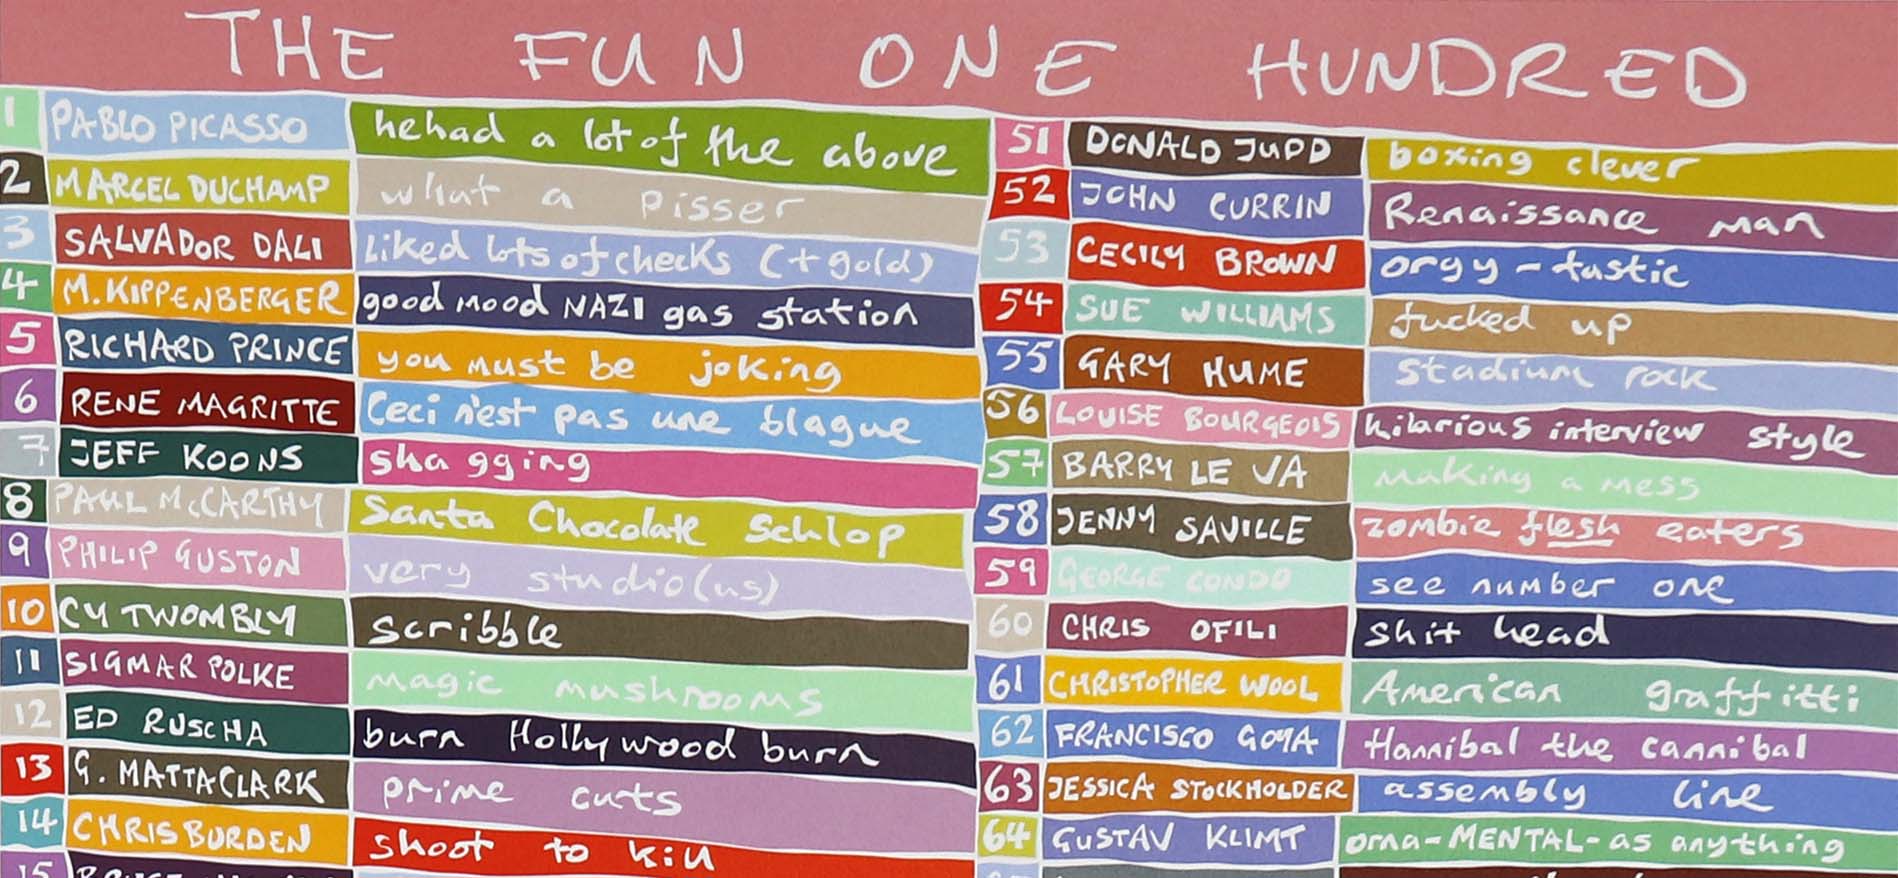 THE FUN ONE HUNDRED
1 PABLO PICASSO he had a lot of the above
2 MARCEL DUCHAMP what a pisser
3 SALVADOR DALI liked lots of checks (+ gold)
4 M. KIPPENBERGER good mood NAZI gas station
5 RICHARD PRINCE you must be joking
6 RENE MAGRITTE Ceci n'est pas une blague
7 JEFF KOONS shagging
8 PAUL McCARTHY Santa Chocolate Schlop
9 PHILIP GUSTON very studio(us)
10 CY TWOMBLY scribble
11 SIGMAR POLKE magic mushrooms
12 ED RUSCHA burn Hollywood burn
13 G. MATTACLARK prime cuts
14 CHRIS BURDEN shoot to kill
15
51 DONALD JUDD boxing clever
52 JOHN CURRIN Renaissance man
53 CECILY BROWN orgy-tastic
54 SUE WILLIAMS fucked up
55 GARY HUME stadium rock
56 LOUISE BOURGEOIS hilarious interview style
57 BARRY LE VA making a mess
58 JENNY SAVILLE zombie flesh eaters
59 GEORGE CONDO see number one
60 CHRIS OFILI shit head
61 CHRISTOPHER WOOL American graffitti
62 FRANCISCO GOYA Hannibal the cannibal
63 JESSICA STOCKHOLDER assembly line
64 GUSTAV KLIMT orna-MENTAL-as anything